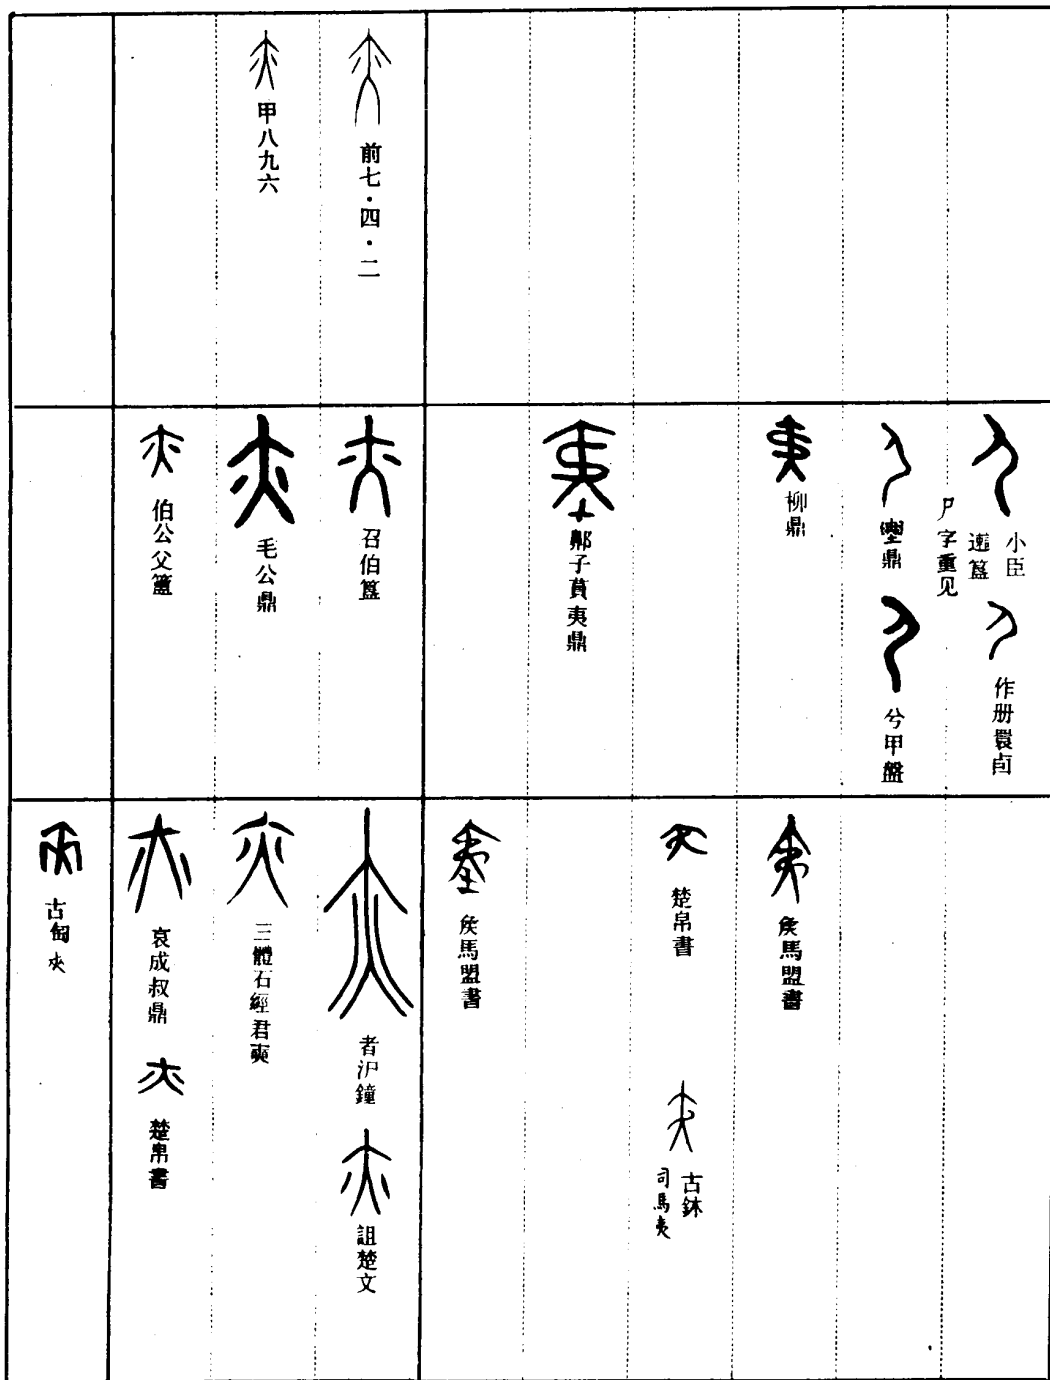 前七·四·二
甲八九六
小臣
𨗨簋
尸字重见
作册睘卣
𡐦鼎
兮甲盤
柳鼎
鄬子莨夷鼎
召伯簋
毛公鼎
伯公父簠
矦馬盟書
楚帛書
古鉨
司馬夷
矦馬盟書
者沪鐘
詛楚文
三體石經君奭
哀成叔鼎
楚帛書
古匋亦